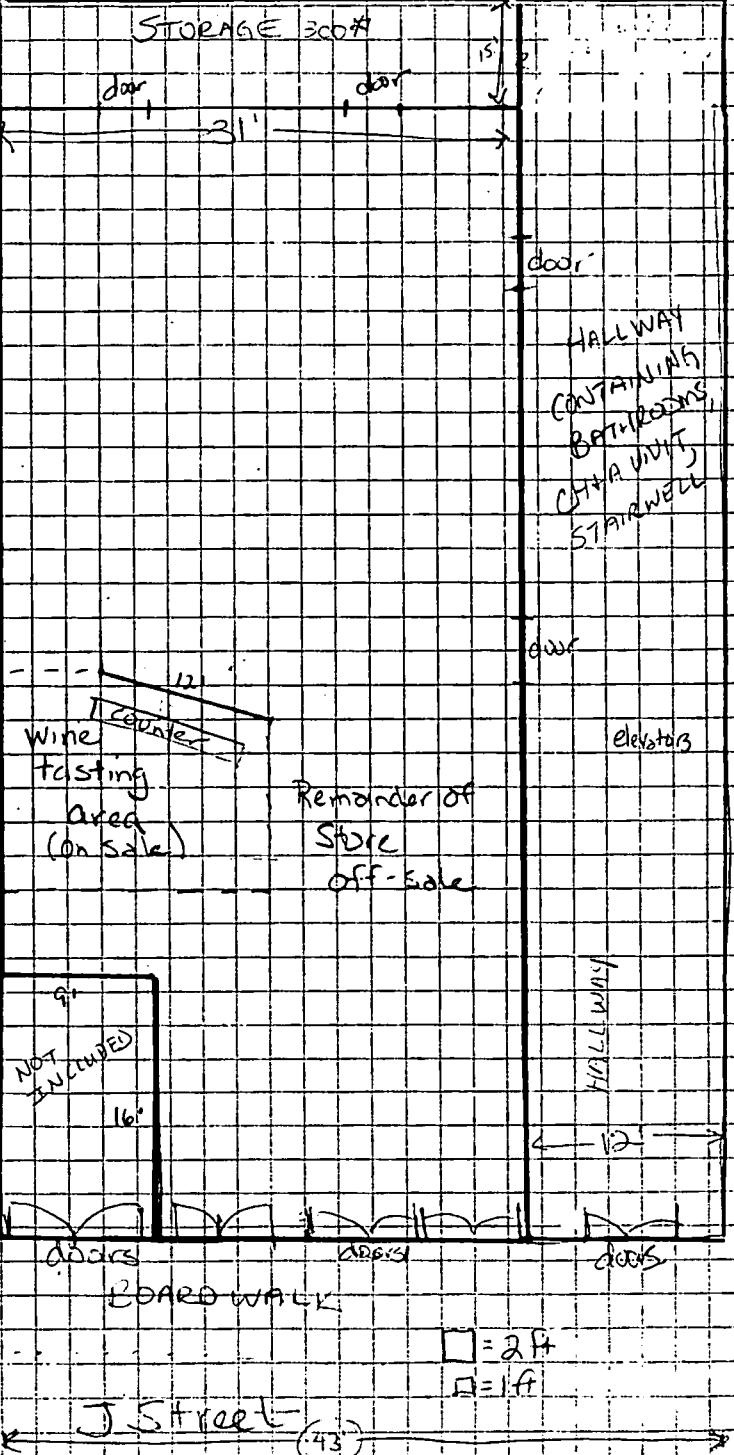 STORAGE 300#
15'
door
door
31'
door
HALLWAY
CONTAINING
BATHROOMS,
CH+A UNIT,
STAIRWELL
door
12'
counter
Wine
tasting
area
(On sale)
elevators
Remainder of
Store
off-sale
9'
NOT
INCLUDED
16'
HALLWAY
12
doors
doors
doors
BOARDWALK
= 2 ft
= 1 ft
J Street
43'